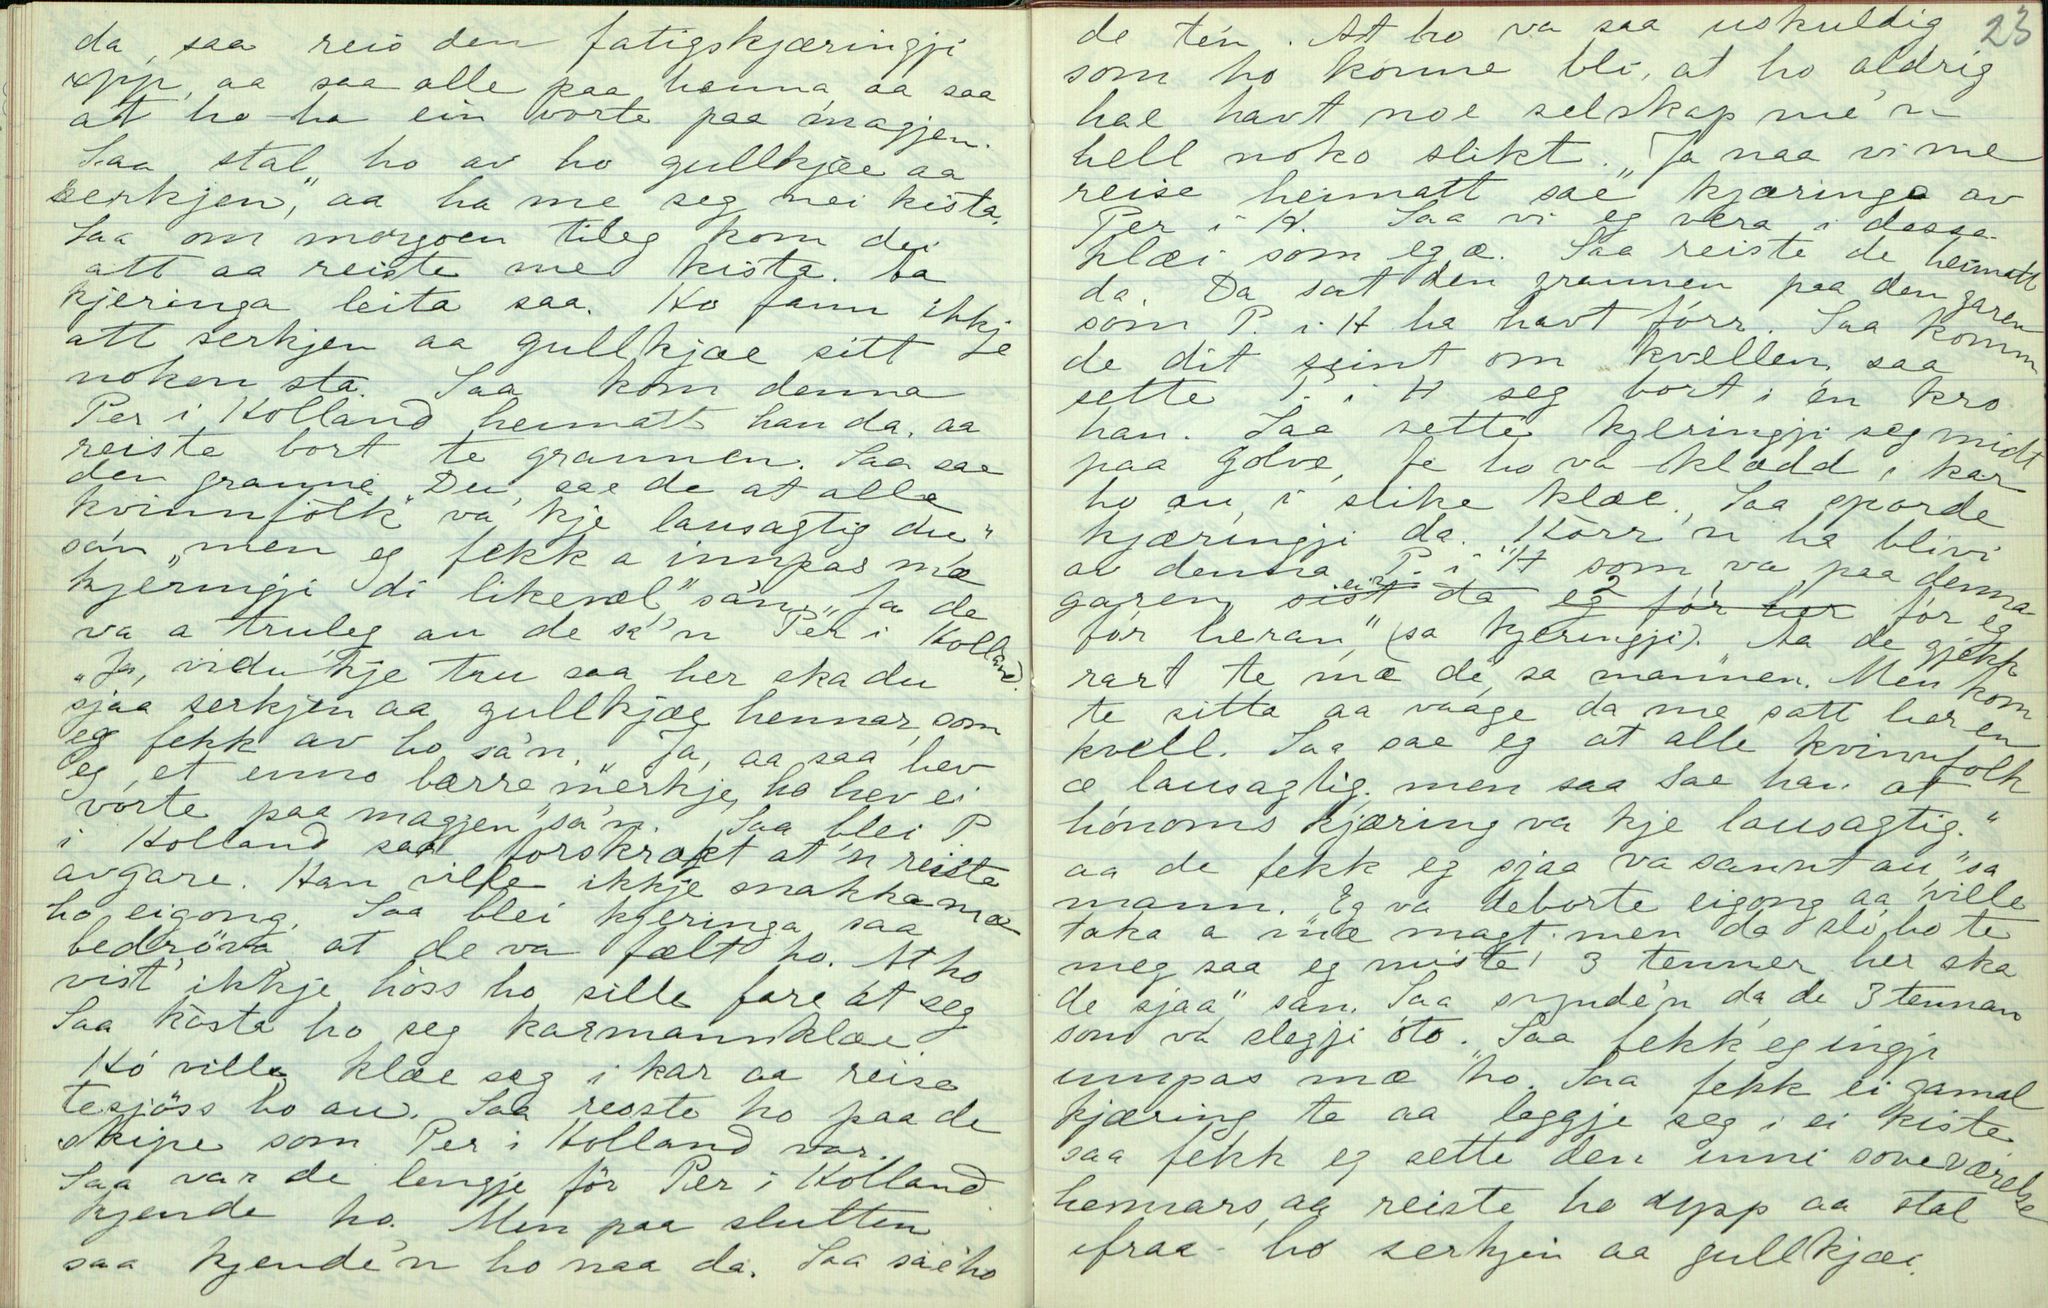 da, saa reis den fatigskjæringji
opp, aa saa alle paa henna, aa saa
at ho ha ein vorte paa magjen.
Saa stal ho av ho gullkjæe aa
serkjen," aa ha me seg nei kista.
Saa om morgoen tileg kom dei
att aa reiste me kista. Ja
kjeringa leita saa. Ho fann ikkje
att serkjen aa gullkjæe sitt
noken sta. Saa kom denna
Per i Holland heimatt han da, aa
reiste bort te grannen. Saa sae
den granne "Du, sae de at alle
kvinnfolk va kje lausagtig du"
sa'n, "men eg fekk a innpas mæ
kjeringji di likevæl," sa'n. "Ja de
va a truleg au de sa'n Per i Holland.
"Ja, vidu kje tru saa her ska du
sjaa serkjen aa gullkjæe hennar, som
eg fekk av ho, sa'n. Ja, aa saa hev
eg et enno bærre merkje, ho hev ei
vorte paa magjen" sa'n. Saa blei P
i Holland saa forskrækt at'n reiste
avgare. Han ville ikkje snakka mæ
ho eigong. Saa blei kjeringa saa
bedrøva, at de va fælt ho. At ho
vist ikkje høss ho sille fare åt seg
Saa kösta ho seg karmannklæe
Ho ville klæe seg i kar aa reise
tesjöss ho au. Saa reiste ho paa de
skipe som Per i Holland var.
Saa var de lengje för Per i Holland
kjende ho. Men paa slutten
saa kjende'n ho naa da. Saa sae ho
23
de te'n. At ho va saa uskuldig
som ho konne bli, at ho aldrig
hae havt noe selskap me'n
hell noko slikt. "Ja naa vi me
reise heimatt" sae kjæringa av
Per i H. Saa vi eg vera i dessa
klæi som eg æ. Saa reiste de heimatt
da. Da sat den grannen paa den garen
som P. i H ha havt förr. Saa komm
de dit seint om kvellen, saa
sette P. i H seg bort i en kro
han. Saa sette kjeringji seg midt
paa golve, fe ho va klædd i kar
ho au, i slike klæe. Saa sporde
kjæringji da. Korr'n ha blivi
av denna P. i H som va paa denna
garen, sist da eg för her för eg
for heran," (sa kjeringji). Aa de gjekk
rart te mæ de, sa mannen. Men kom
te sitta aa vaage da me satt her en
kvell. Saa sae eg at alle kvinnfolk
æ lausagtig, men saa sae han at
honoms kjæring va kje lausagtig."
aa de fekk eg sjaa va sannt au, "sa
mann. Eg va deborte eigong aa ville
taka a mæ magt men da slo ho te
meg saa eg miste 3 tenner, her ska
de sjaa", sa'n. Saa synde'n da de 3 tennan
som va slegji oto. Saa fekk eg ingji
innpas mæ ho. Saa fekk ei gamal
kjæring te aa leggje seg i ei kiste
saa fekk eg sette den inni soveværelse
hennars, aa reiste ho opp aa stal
ifraa ho serkjen aa gullkjæe.